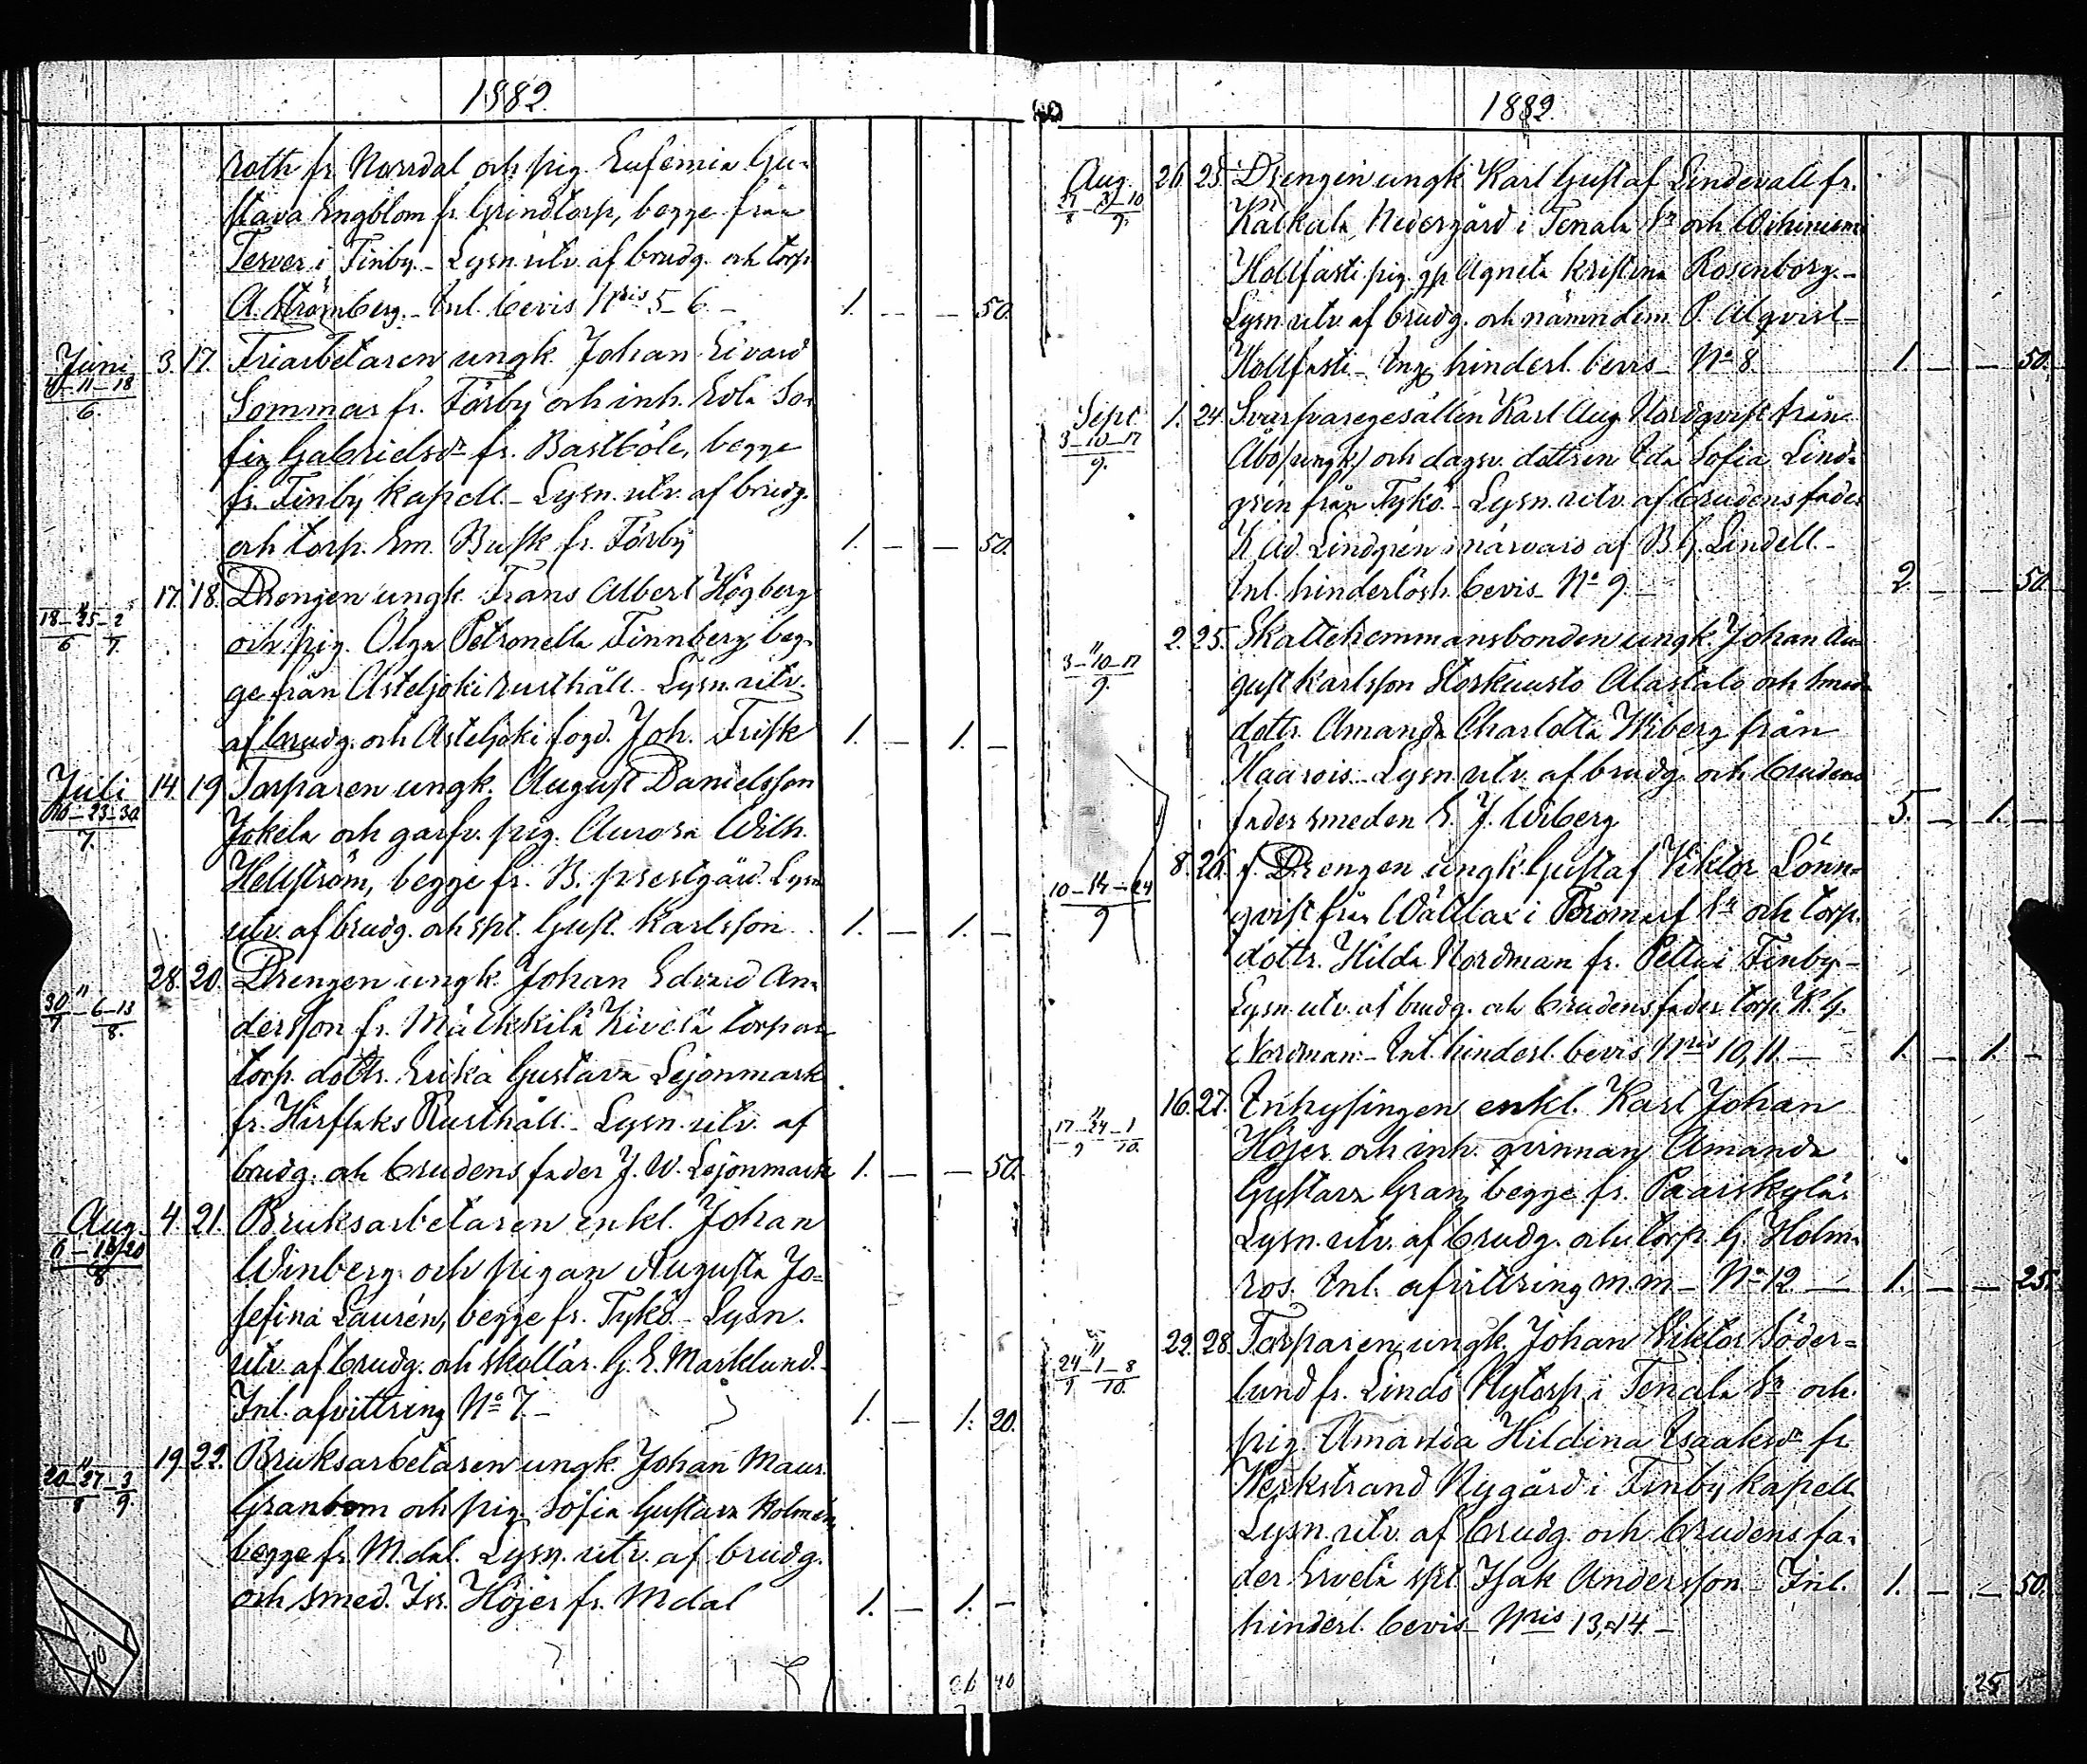 1882
roth fr. Norrdal och pig. Eufemia Gu-
stava Engblom fr. Grindtorp, begge från
Tesver i Finby. - Lysn. utv. af brudg. och torp.
A. Strömberg. - Inl. bevis Nris 5-6 - 1. — — 50.
Juni 3. 17. Friarbetaren ungk. Johan Edvard
4 - 11 - 18 / 6.
Sommar fr. Förby och inh. Edla So-
fia Gabrielsdr fr. Bastböle, begge
fr. Finby Kapell. - Lysn. utv. af brudg.
och torp. Em. Busk fr. Förby 1. — — 50.
17. 18. Drengen ungk. Frans Albert Högberg
" 18 - 25 - 2 / 6 7
och pig. Olga Petronella Finnberg, beg-
ge från Asteljoki rusthåll. Lysn. utv.
af brudg. och Asteljoki fogd. Joh. Frisk 1. — 1. —
Juli 14. 19 Torparen ungk. August Danielsson
16 - 23 - 30 / 7.
Jokela och garfv. pig. Aurora Wilh.
Hellström, begge fr. B. prestgård. Lysn
utv. af brudg. och spt. Gust. Karlsson 1. — 1. —
28. 20. Drengen ungk. Johan Edvard An-
" 30 - 6 - 13 / 7 8.
dersson fr. Märkkilä Kivelä torp och
torp. dottr. Erika Gustava Lejonmark
fr. Hirflaks Rusthåll. - Lysn. utv. af
brudg. och brudens fader J. W. Lejonmark 1. — — 50.
Aug. 4. 21. Bruksarbetaren enkl. Johan
6 - 13 / 20 / 8
Winberg och pigan Augusta Jo-
sefina Laurén, begge fr. Tykö. - Lysn.
utv. af brudg. och skollär. G. E. Marklund. -
Inl. afvittring No 7. - 1. — 1. 20.
19. 22. Bruksarbetaren ungk. Johan Maur.
" 20 - 27 - 3 / 8 9.
Granbom och pig. Sofia Gustava Holmén,
begge fr. M.dal. Lysn. utv. af brudg.
och smed. Isr. Höjer fr. M.dal 1. — 1. —
1882
Aug. 26. 23. Drengen ungk. Karl Gustaf Lindevall fr.
27 - 3 - 10 / 8 9.
Kålkala Nedergård i Tenala Sn och
Hollfasti pig. Agneta Kristina Rosenborg. -
Lysn. utv. af brudg. och nämndem. P. Alqvist -
Hollfasti - Ing. hinderl. bevis - No 8. 1. — — 50.
Sept. 1. 24. Svarfvaregesällen Karl Aug. Nordqvist från
3 - 10 - 17 / 9.
Åbo (ungk.) och dagsv. dottren Ida Sofia Lind-
grén från Tykö. - Lysn. utv. af brudens fader
K. Ad. Lindgrén i närvaro af B. G. Lindell. -
Inl. hinderlösh. bevis - No 9. - 2. — — 50.
2. 25. Skattehemmansbonden ungk. Johan Au-
" 3 - 10 - 17 / 9.
gust Karlsson Storkuusto Alastalo och smed.
dottr. Amanda Charlotta Wiberg från
Haarois. Lysn. utv. af brudg. och brudens
fader smeden E. J. Wiberg 5. — 1. —
8. 26. f. Drengen ungk. Gustaf Viktor Lönn-
10 - 17 - 24 / 9
qvist från Wättlax i Bromarf Sn och torp.
dottr. Hilda Nordman fr. Pettu i Finby -
Lysn. utv. af brudg. och brudens fader torp. K. G.
Nordman. - Inl. hinderl. bevis Nris 10, 11. — 1. — 1. —
16. 27. Inhysingen enkl. Karl Johan
" 17 - 24 - 1 / 9 10.
Höjer och inh. qvinnan Amanda
Gustava Gran, begge fr. Paarskylä.
Lysn. utv. af brudg. och torp. G. Holm-
ros. Inl. afvittring m.m. - No 12 — 1. — — 25.
22. 28. Torparen ungk. Johan Viktor Söder-
" 24 - 1 - 8 / 9 10.
lund fr. Lindö Nytorp i Tenala Sn och
pig. Amanda Hildina Isaaksdr fr.
Werkstrand Nygård i Finby kapell.
Lysn. utv. af brudg. och brudens fa-
der Ervelä spt. Isak Andersson - Inl. 1. — — 50.
hinderl. bevis - Nris 13, 14. -